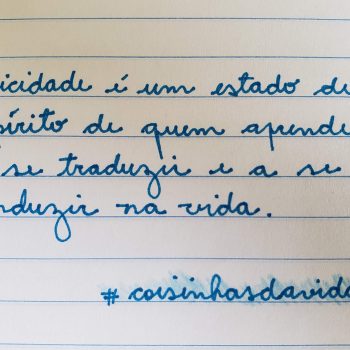 icidade é um estado de
pírito de quem aprende
se traduzir e a se
nduzir na vida.
#coisinhasdavida